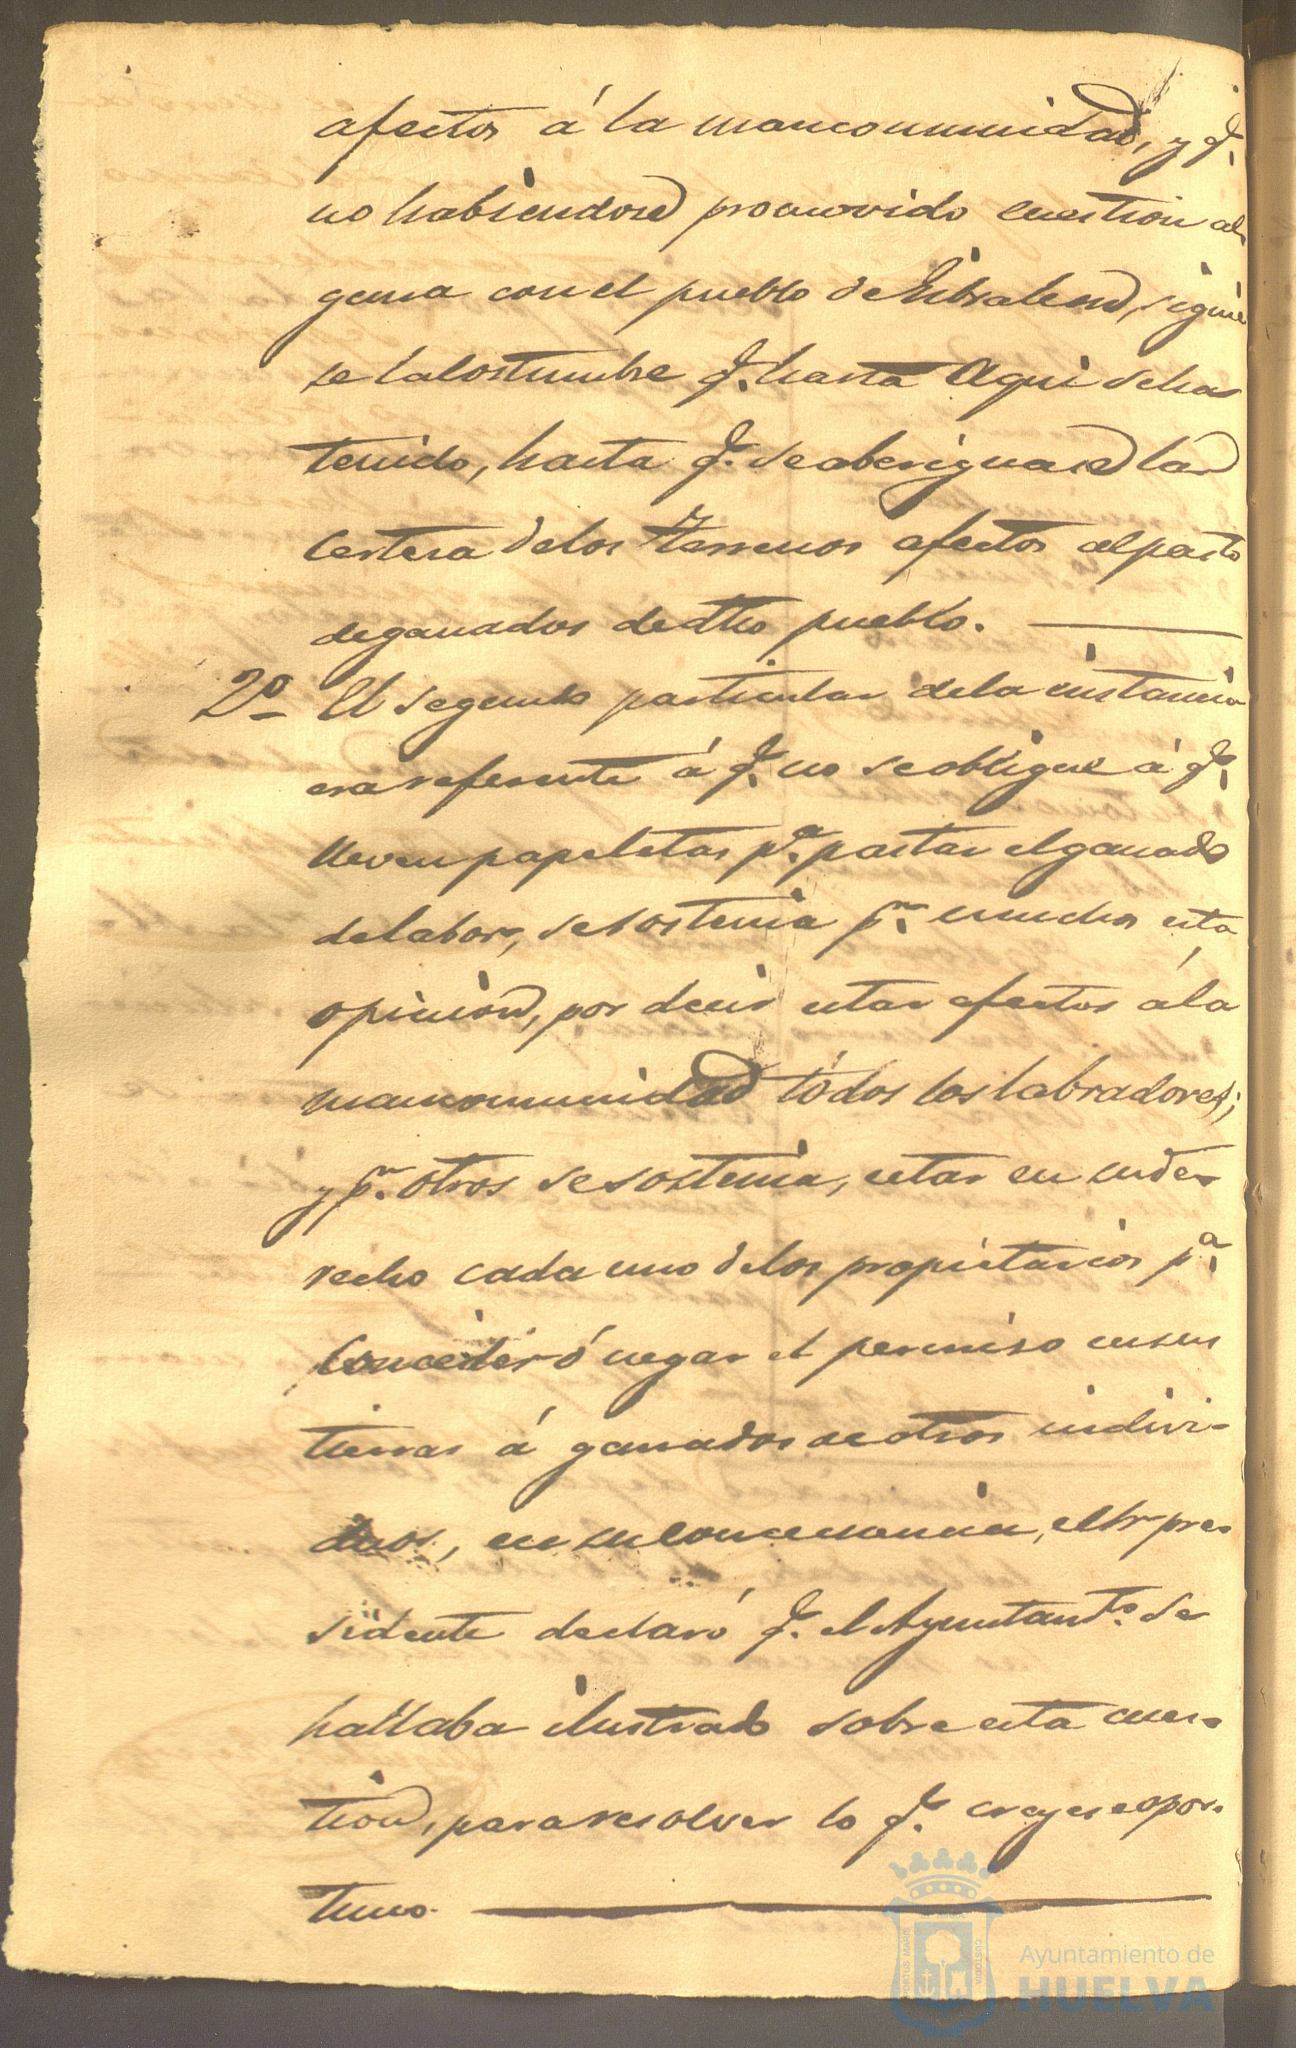 afectos á la mancomunidad, y q.
no habiendose promovido cuestion al-
guna con el pueblo de Gibraleon, siguie
se la costumbre q. hasta aqui se ha
tenido, hasta q. se aberiguase la
certesa de los terrenos afectos al pasto
de ganados de dho pueblo. ———
2º El segundo particular de la instancia
era referente á q. no se obligue á q.
lleven papeletas pª. pastar el ganado
de labor, se sostenia pr. muchos esta
opinion, por decir estar afectos á la
mancomunidad todos los labradores;
y pr. otros se sostenia, estar en su de-
recho cada uno de los propietarios pª.
conceder ó negar el permiso en sus
tierras á ganados de otros indivi-
duos, en su consecuencia, el Sr. pre-
sidente declaró q. el Ayuntamto. se
hallaba ilustrado sobre esta cues-
tion, para resolver lo q. creyese opor-
tuno. ———
PORTUS MARIS CUSTODIA
Ayuntamiento de
HUELVA